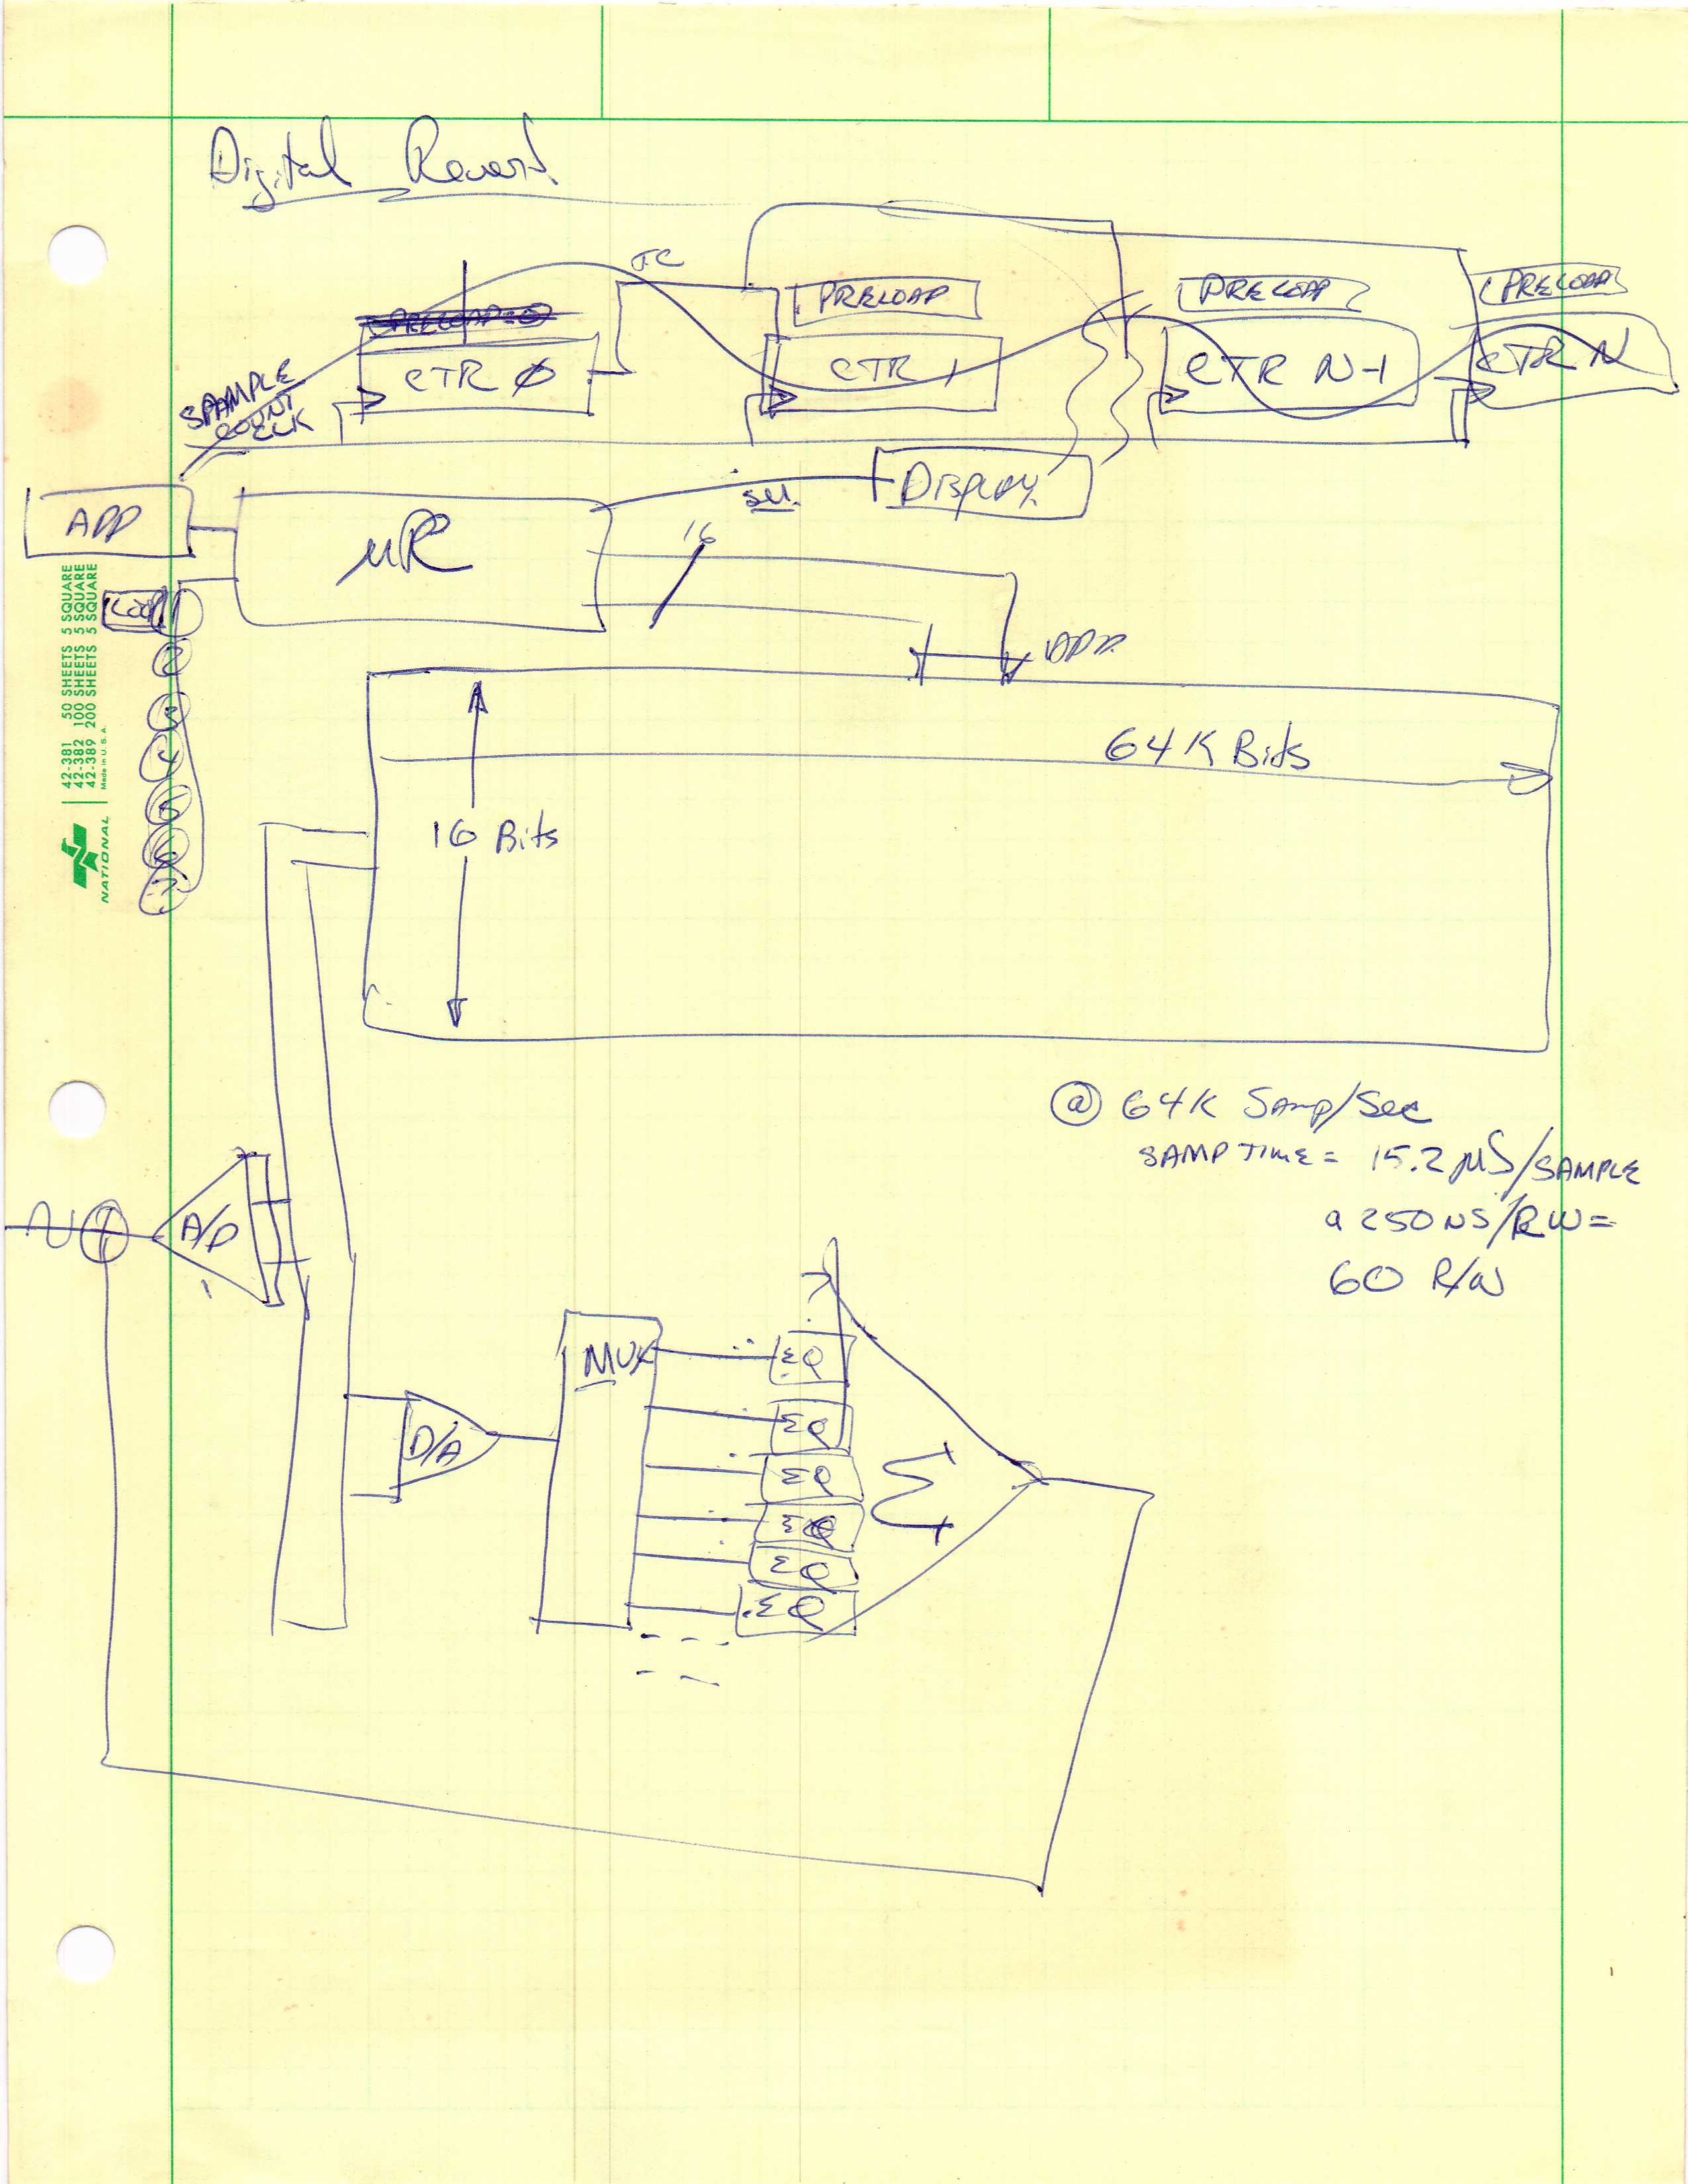 Digital Reverb
TC
PRELOAD=0
PRELOAD
PRELOAD
PRELOAD
CTR Ø
CTR 1
CTR N-1
CTR N
SAMPLE
COUNT
CLK
APP
µP
Display
16
ADD
1
2
3
4
5
6
7
42-381 50 SHEETS 5 SQUARE
42-382 100 SHEETS 5 SQUARE
42-389 200 SHEETS 5 SQUARE
Made in U.S.A.
NATIONAL
64K Bits
16 Bits
@ 64K Samp/Sec
SAMP TIME = 15.2 µS/SAMPLE
a 250 NS/RW =
60 R/W
A/D
D/A
MUX
EQ
EQ
EQ
EQ
EQ
EQ
Σ